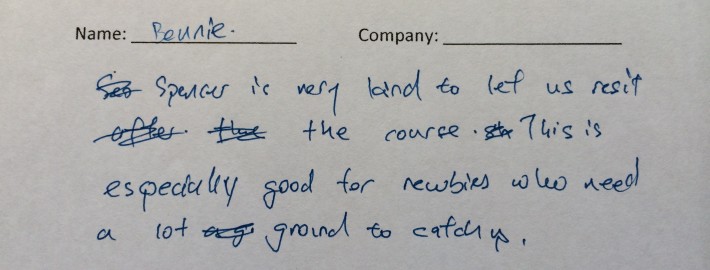 Name: Bennie.
Company:
Spencer is very kind to let us resit
the course. This is
especially good for newbies who need
a lot ground to catch up.